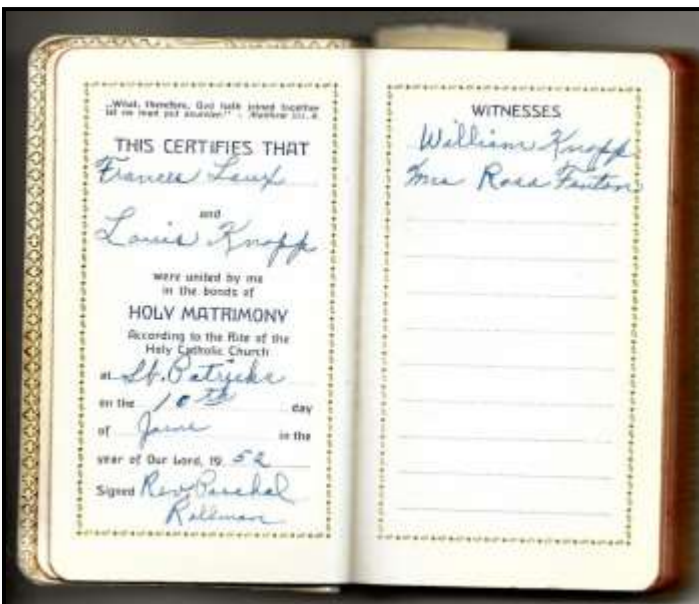 "What, therefore, God hath joined together
let no man put asunder." - Matthew
THIS CERTIFIES THAT
Frances Laux
and
Louis Knopp
were united by me
in the bonds of
HOLY MATRIMONY
According to the Rite of the
Holy Catholic Church
at St. Patricks
on the 10th day
of June in the
year of Our Lord, 19 52
Signed Rev Paschal
Rollman
WITNESSES
William Knopp
Mrs Rosa Fenton